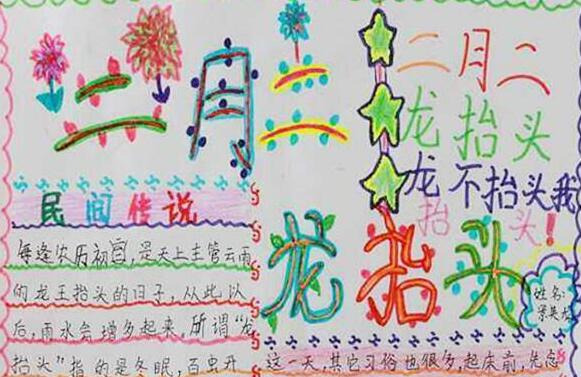 二月二
二月二
龙抬头
龙不抬头我
抬头！
民间传说
龙抬头
每逢农历初
是天上主管云雨
的龙王抬头的日子，从此以
后，雨水会增多起来，所谓"龙
抬头"指的是冬眠，百虫开
这一天，其它习俗也很多，起床前，先念
姓名：